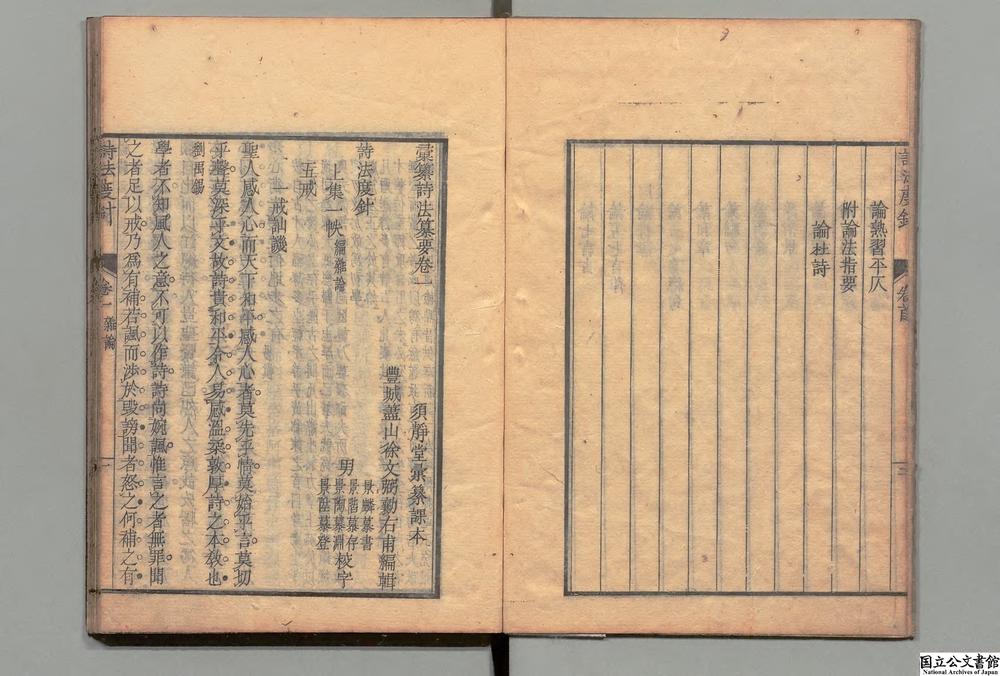 論熟習平仄
附論法指要
論杜詩
詩法度針
卷首
三
彙纂詩法纂要卷一
須靜堂彙纂課本
豐城蓋山徐文弼勷右甫編輯
詩法度針
男
景麟慕書
景喈慕存
景陶慕淵
景陞慕登
校字
上集一帙
編雜論
五戒
一戒訕譏
聖人感人心而天下和平感人心者莫先乎情莫始乎言莫切
乎聲莫深乎文故詩貴和平令人易感溫柔敦厚詩之本敎也
劉禹錫
學者不知風人之意不可以作詩詩尚婉諷惟言之者無罪聞
之者足以戒乃爲有補若諷而涉於毀謗聞者怒之何補之有
詩法度針
卷一
雜論
一
国立公文書館
National Archives of Japan